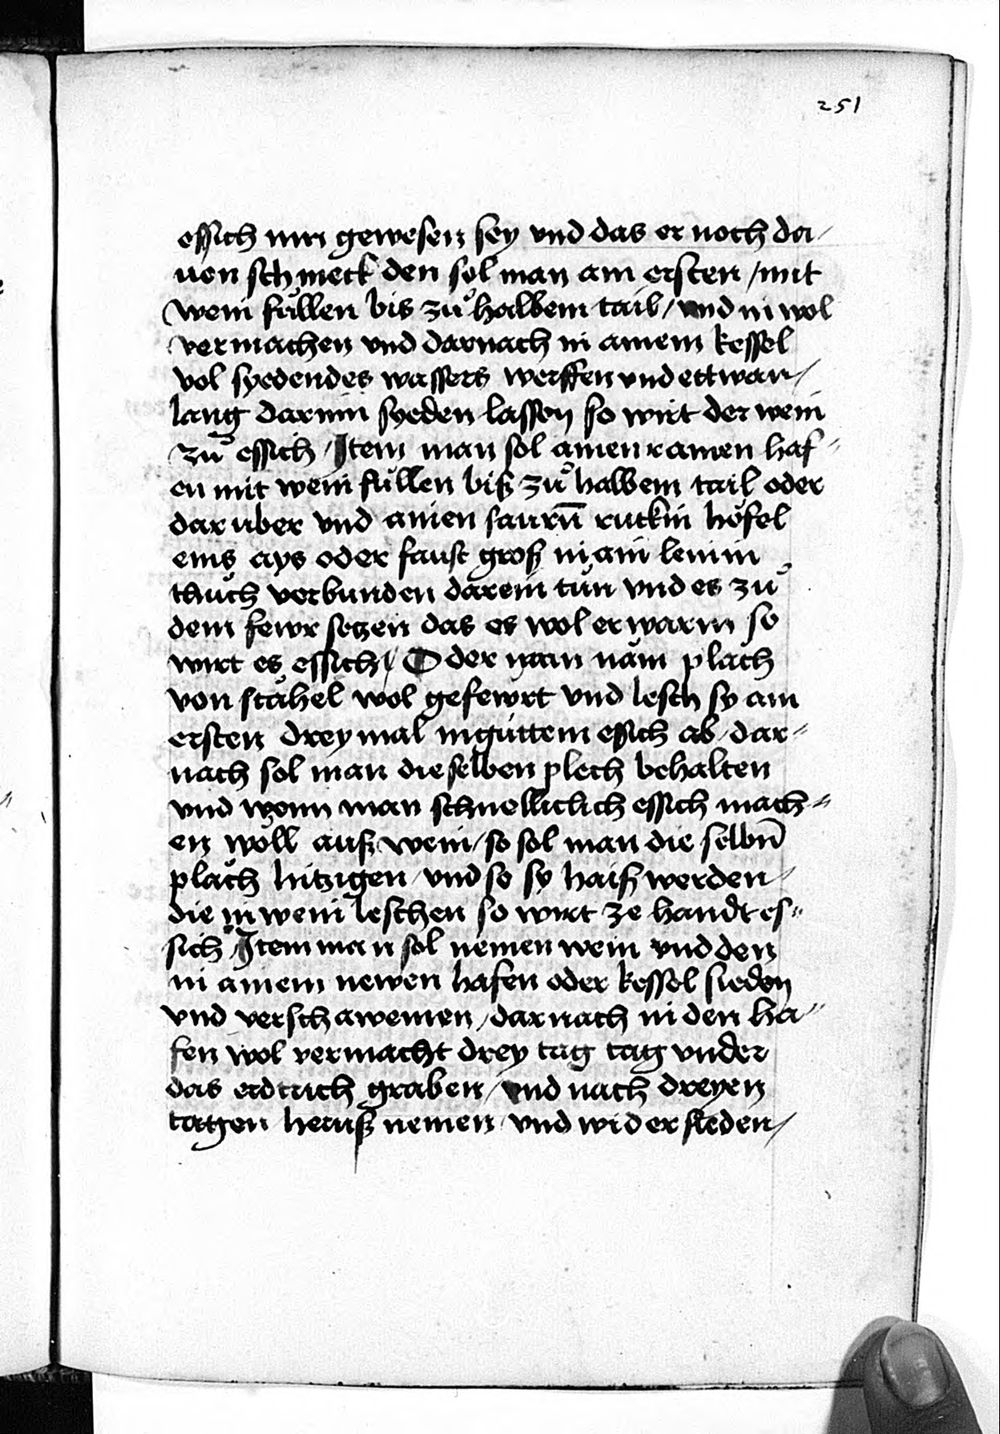 251
essich inn gewesen sey vnd das er noch da/
uon schmeck den sol man am ersten / mit
wein füllen bis zů halbem tail / vnd in wol
vermachen vnd darnach in ainem kessel
vol syedendes wassers werffen vnd ettwan/
lang darinn syeden lassen so wirt der wein
zů essich / Item man sol ainen ramen haf=
en mit wein füllen biß zů halbem tail oder
daruber vnd ainen saurn̄ ruckin höfel
eins ays oder faust groß in ain leinin
thůch verbunden darein tůn vnd es zů
dem fewr setzen das es wol erwarm so
wirt es essich / Oder man näm pläch
von stähel wol gefewrt vnd lesch sy am
ersten dreymal in gůttem essich ab / dar=
nach sol man die selben plech behalten
vnd wenn man schnelliclich essich mach=
en wöll auß wein / so sol man die selbn̄
pläch hitzigen / vnd so sy haiß werden /
die in wein leschen so wirt ze handt es=
sich / Item man sol nemen wein vnd den
in ainem newen hafen oder kessel sieden
vnd verschawemen / darnach in den ha=
fen wol vermacht drey tag tag vnder
das erdtrich graben / vnd nach dreyen
tagen heruß nemen / vnd wider sieden /